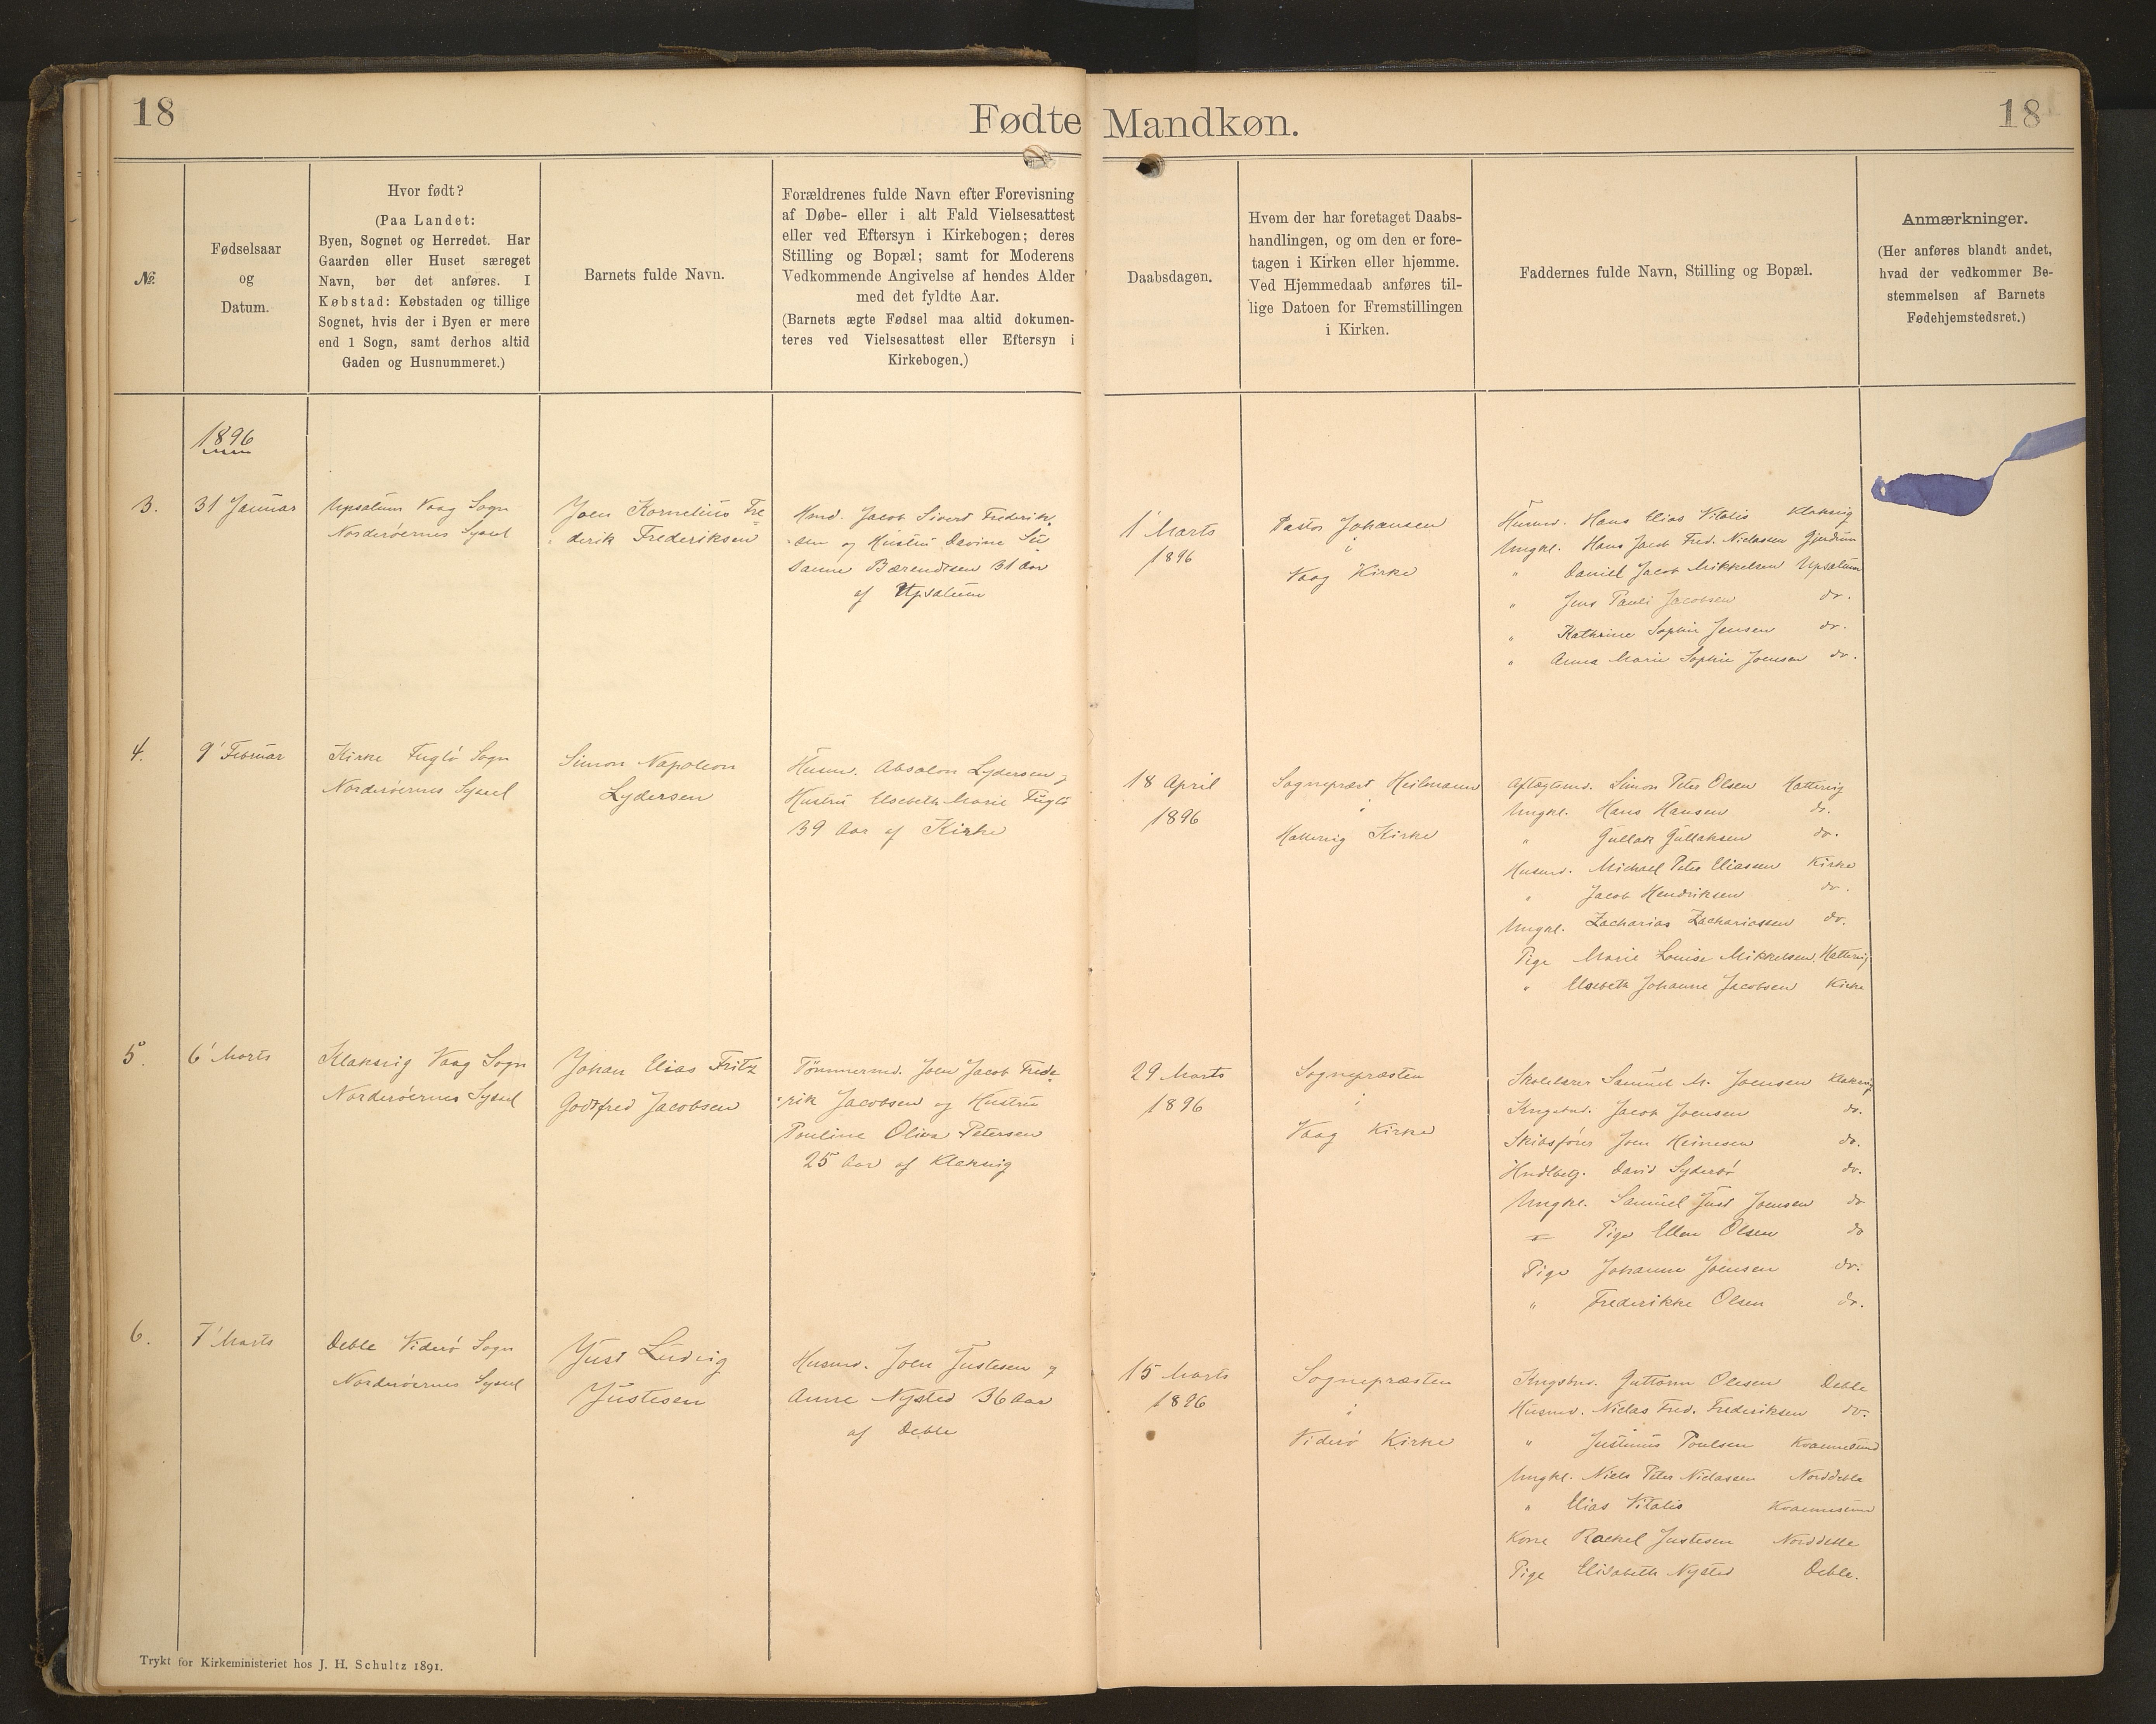 18
Fødte Mandkøn.
18
№.
Fødselsaar
og
Datum.
Hvor født?
(Paa Landet:
Byen, Sognet og Herredet. Har
Gaarden eller Huset særeget
Navn, bør det anføres. I
Købstad: Købstaden og tillige
Sognet, hvis der i Byen er mere
end 1 Sogn, samt derhos altid
Gaden og Husnummeret.)
Barnets fulde Navn.
Forældrenes fulde Navn efter Forevisning
af Døbe- eller i alt Fald Vielsesattest
eller ved Eftersyn i Kirkebogen; deres
Stilling og Bopæl; samt for Moderens
Vedkommende Angivelse af hendes Alder
med det fyldte Aar.
(Barnets ægte Fødsel maa altid dokumen-
teres ved Vielsesattest eller Eftersyn i
Kirkebogen.)
Daabsdagen.
Hvem der har foretaget Daabs-
handlingen, og om den er fore-
tagen i Kirken eller hjemme.
Ved Hjemmedaab anføres til-
lige Datoen for Fremstillingen
i Kirken.
Faddernes fulde Navn, Stilling og Bopæl.
Anmærkninger.
(Her anføres blandt andet,
hvad der vedkommer Be-
stemmelsen af Barnets
Fødehjemstedsret.)
1896
3.
31 Januar
Upsalum Vaag Sogn
Norderöernes Syssel
Joen Kornelius Fre
derik Frederiksen
Hmd. Jacob Sivert Frederik
sen og Hustru Davine Su
sanne Bærendtsen 31 Aar
af Upsalum
1 Marts
1896
Pastor Johansen
i
Vaag Kirke
Husmd. Hans Elias Vitalis Klaksvig
Ungkl. Hans Jacob Fred. Niclassen Gjerdum
" Daniel Jacob Mikkelsen Upsalum
" Jens Pauli Jacobsen do.
" Kathrine Sophie Jensen do.
" Anna Marie Sophie Joensen do.
4.
9' Februar
Kirke Fuglö Sogn
Norderöernes Syssel
Simon Napoleon
Lydersen
Husmd. Absalon Lydersen og
Hustru Elsebeth Marie Fuglö
39 Aar af Kirke
18 April
1896
Sognepræst Heilmann
i
Hattervig Kirke
Aftægtsmd. Simon Peter Olsen Hattervig
Ungkl. Hans Hansen do.
" Gullak Gullaksen do.
Husmd. Michael Peter Eliassen Kirke
" Jacob Hendriksen do.
Ungkl. Zacharias Zachariassen do.
Pige Marie Louise Mikkelsen Hattervig
" Elsebeth Johanne Jacobsen Kirke
5.
6' Marts
Klaksvig Vaag Sogn
Norderöernes Syssel
Johan Elias Fritz
Godtfred Jacobsen
Tömmermd. Joen Jacob Frede
rik Jacobsen og Hustru
Pouline Oliva Petersen
25 Aar af Klaksvig
29 Marts
1896
Sognepræsten
i
Vaag Kirke
Skolelærer Samuel M. Joensen Klaksvig
Kngsbnd. Jacob Joensen do.
Skibsfører Joen Heinesen do.
Hndlbetj. David Syderbö do.
Ungkl. Samuel Just Joensen do
Pige Ellen Olsen do
Pige Johanne Joensen do.
" Frederikke Olsen do.
6.
7' Marts
Deble Viderö Sogn
Norderöernes Syssel
Just Ludvig
Justesen
Husmd. Joen Justesen og
Anne Nysted 36 Aar
af Deble
15 Marts
1896
Sognepræsten
i
Viderö Kirke
Kngsbnd. Guttorm Olesen Deble
Husmd. Niclas Fred. Frederiksen do.
" Justinus Poulsen Kvannesund
Ungkl. Niels Peter Niclassen Norddeble
" Elias Vitalis Kvannesund
Kone Rachel Justesen Norddeble
Pige Elisabeth Nysted Deble.
Trykt for Kirkeministeriet hos J. H. Schultz 1891.